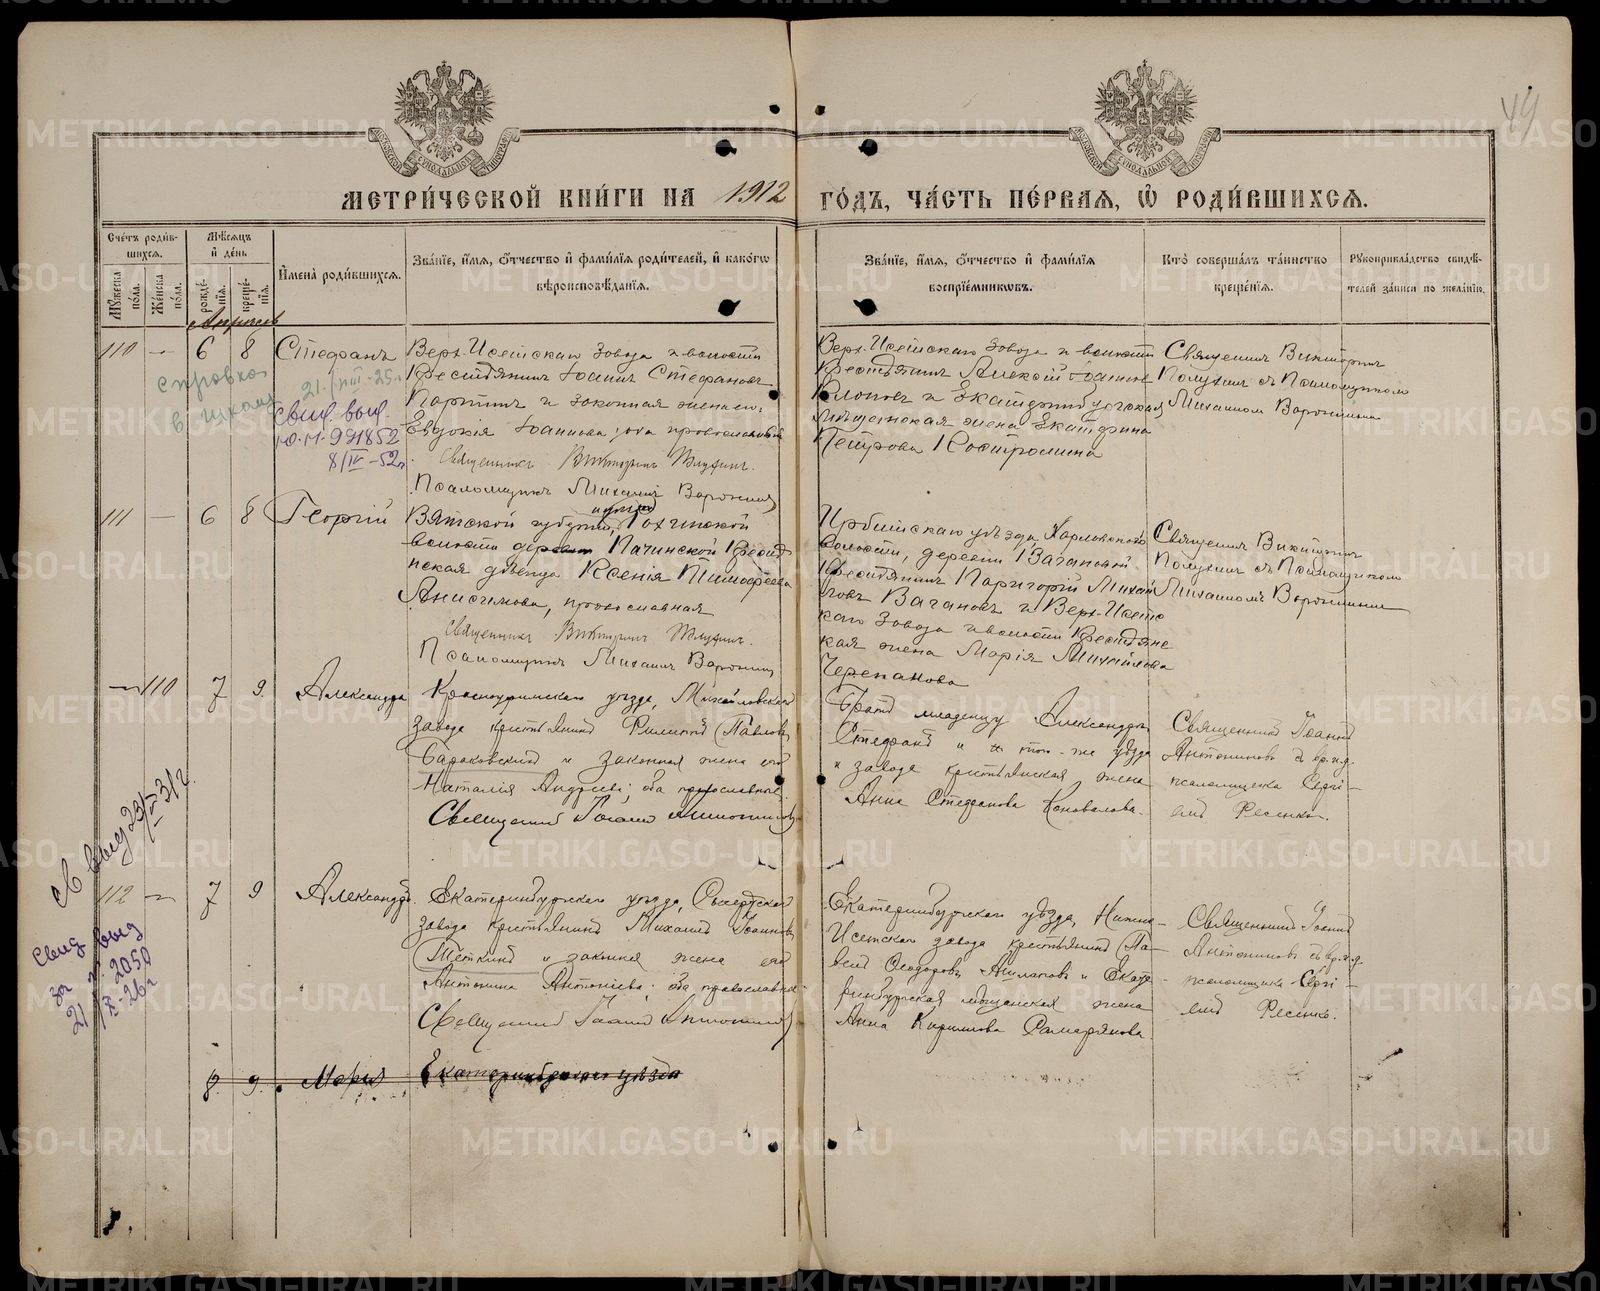 49
МЕТРИ́ЧЕСКОЙ КНИ́ГИ НА 1912 ГО́ДЪ, ЧА́СТЬ ПЕ́РВАЯ, Ѡ҆ РОДИ́ВШИХСЯ.
Сче́тъ роди́в-
шихся.
Му́жеска по́ла.
Же́нска по́ла.
Мѣ́сяцъ
и҆ де́нь
рожде́-
нїя.
креще́-
нїя.
И҆мена̀ роди́вшихся.
Зва́нїе, и҆́мя, ѻ҆́тчество и҆ фами́лїя роди́телей, и҆ како́гѡ
вѣроисповѣ́данїя.
Зва́нїе, и҆́мя, ѻ҆́тчество и҆ фами́лїя
воспрїе́мниковъ.
Кто̀ соверша́лъ та́инство
креще́нїя.
Рꙋкоприкла́дство свидѣ́-
телей за́писи по жела́нїю.
Апрель
110 — 6 8 Стефанъ
справка
в школу
21/VIII-25г
Свид. выд.
Ю.М. 991852
8/IV-52г
Верх-Исетскаго Завода и волости
Крестьянинъ Іоаннъ Стефановъ
и законная жена его
Евдокія Іоаннова; оба православные
Священникъ Викторинъ
Псаломщикъ Михаилъ Воронинъ
Верх-Исетскаго Завода и волости
Крестьянинъ Алексѣй Іоанновъ
и Екатеринбургская
мѣщанская жена Екатерина
Петрова Костромина
Священникъ Викторинъ
съ Псаломщикомъ
Михаиломъ Воронинымъ
111 — 6 8 Георгій
Вятской губерніи,
волости Пачинской Крестьян
нская дѣвица Ксенія Тимофеева
Анисимова, православная
Священникъ Викторинъ
Псаломщикъ Михаилъ Воронинъ
Ирбитскаго уѣзда, Харловской
волости, деревни Вагановой
Крестьянинъ Григорій Михай
ловъ Вагановъ и Верх-Исетс
каго Завода и волости Крестьянс
кая жена Марія Михайлова
Черепанова
Священникъ Викторинъ
съ Псаломщикомъ
Михаиломъ Ворониным
— 110 7 9. Александра
Красноуфимскаго уѣзда, Михайловскаго
завода крестьянинъ Филиппъ Павловъ
и законная жена его
Наталія Андреева; оба православные.
Священникъ Іоаннъ Антониновъ
Братъ младенцу Александръ
Стефанъ и того-же уѣзда
и завода крестьянская жена
Анна Стефанова Коновалова.
Священникъ Іоаннъ
Антониновъ
псаломщика Сергі-
емъ
св выд 23/II 31г.
112 — 7 9 Александръ.
свид выд
за № 2050
21/IX-26г
Екатеринбургскаго уѣзда, Сысертскаго
завода крестьянинъ Михаилъ Іоанновъ
Тёткинъ и законная жена его
Антонина Антоніева; оба православные
Священникъ Іоаннъ Антониновъ
Екатеринбургскаго уѣзда, Нижне-
Исетскаго завода крестьянинъ Па-
велъ Ѳеодоровъ и Екате-
ринбургская мѣщанская жена
Анна Кириллова
Священникъ Іоаннъ
Антониновъ
псаломщика Сергі-
емъ
8. 9. Марія Екатеринбургскаго уѣзда
METRIKI.GASO-URAL.RU